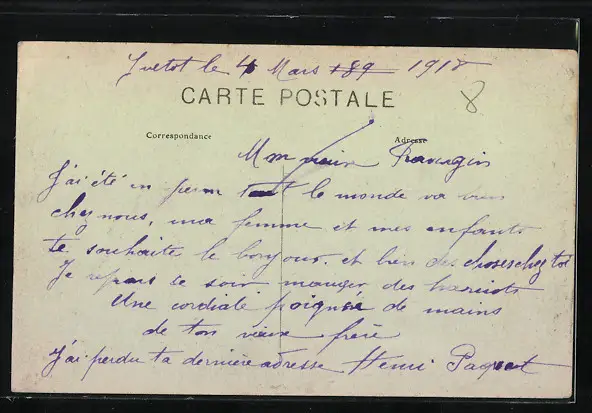 Yvetot le 4 Mars 189 1918
CARTE POSTALE
8
Correspondance
Adresse
Mon vieux
J'ai été en perm tout le monde va bien
chez nous, ma femme et mes enfants
te souhaite le bonjour, et bien des choses chez toi
Je repars ce soir manger des haricots
Une cordiale poignée de mains
de ton vieux frère
J'ai perdu ta dernière adresse Henri Paquet